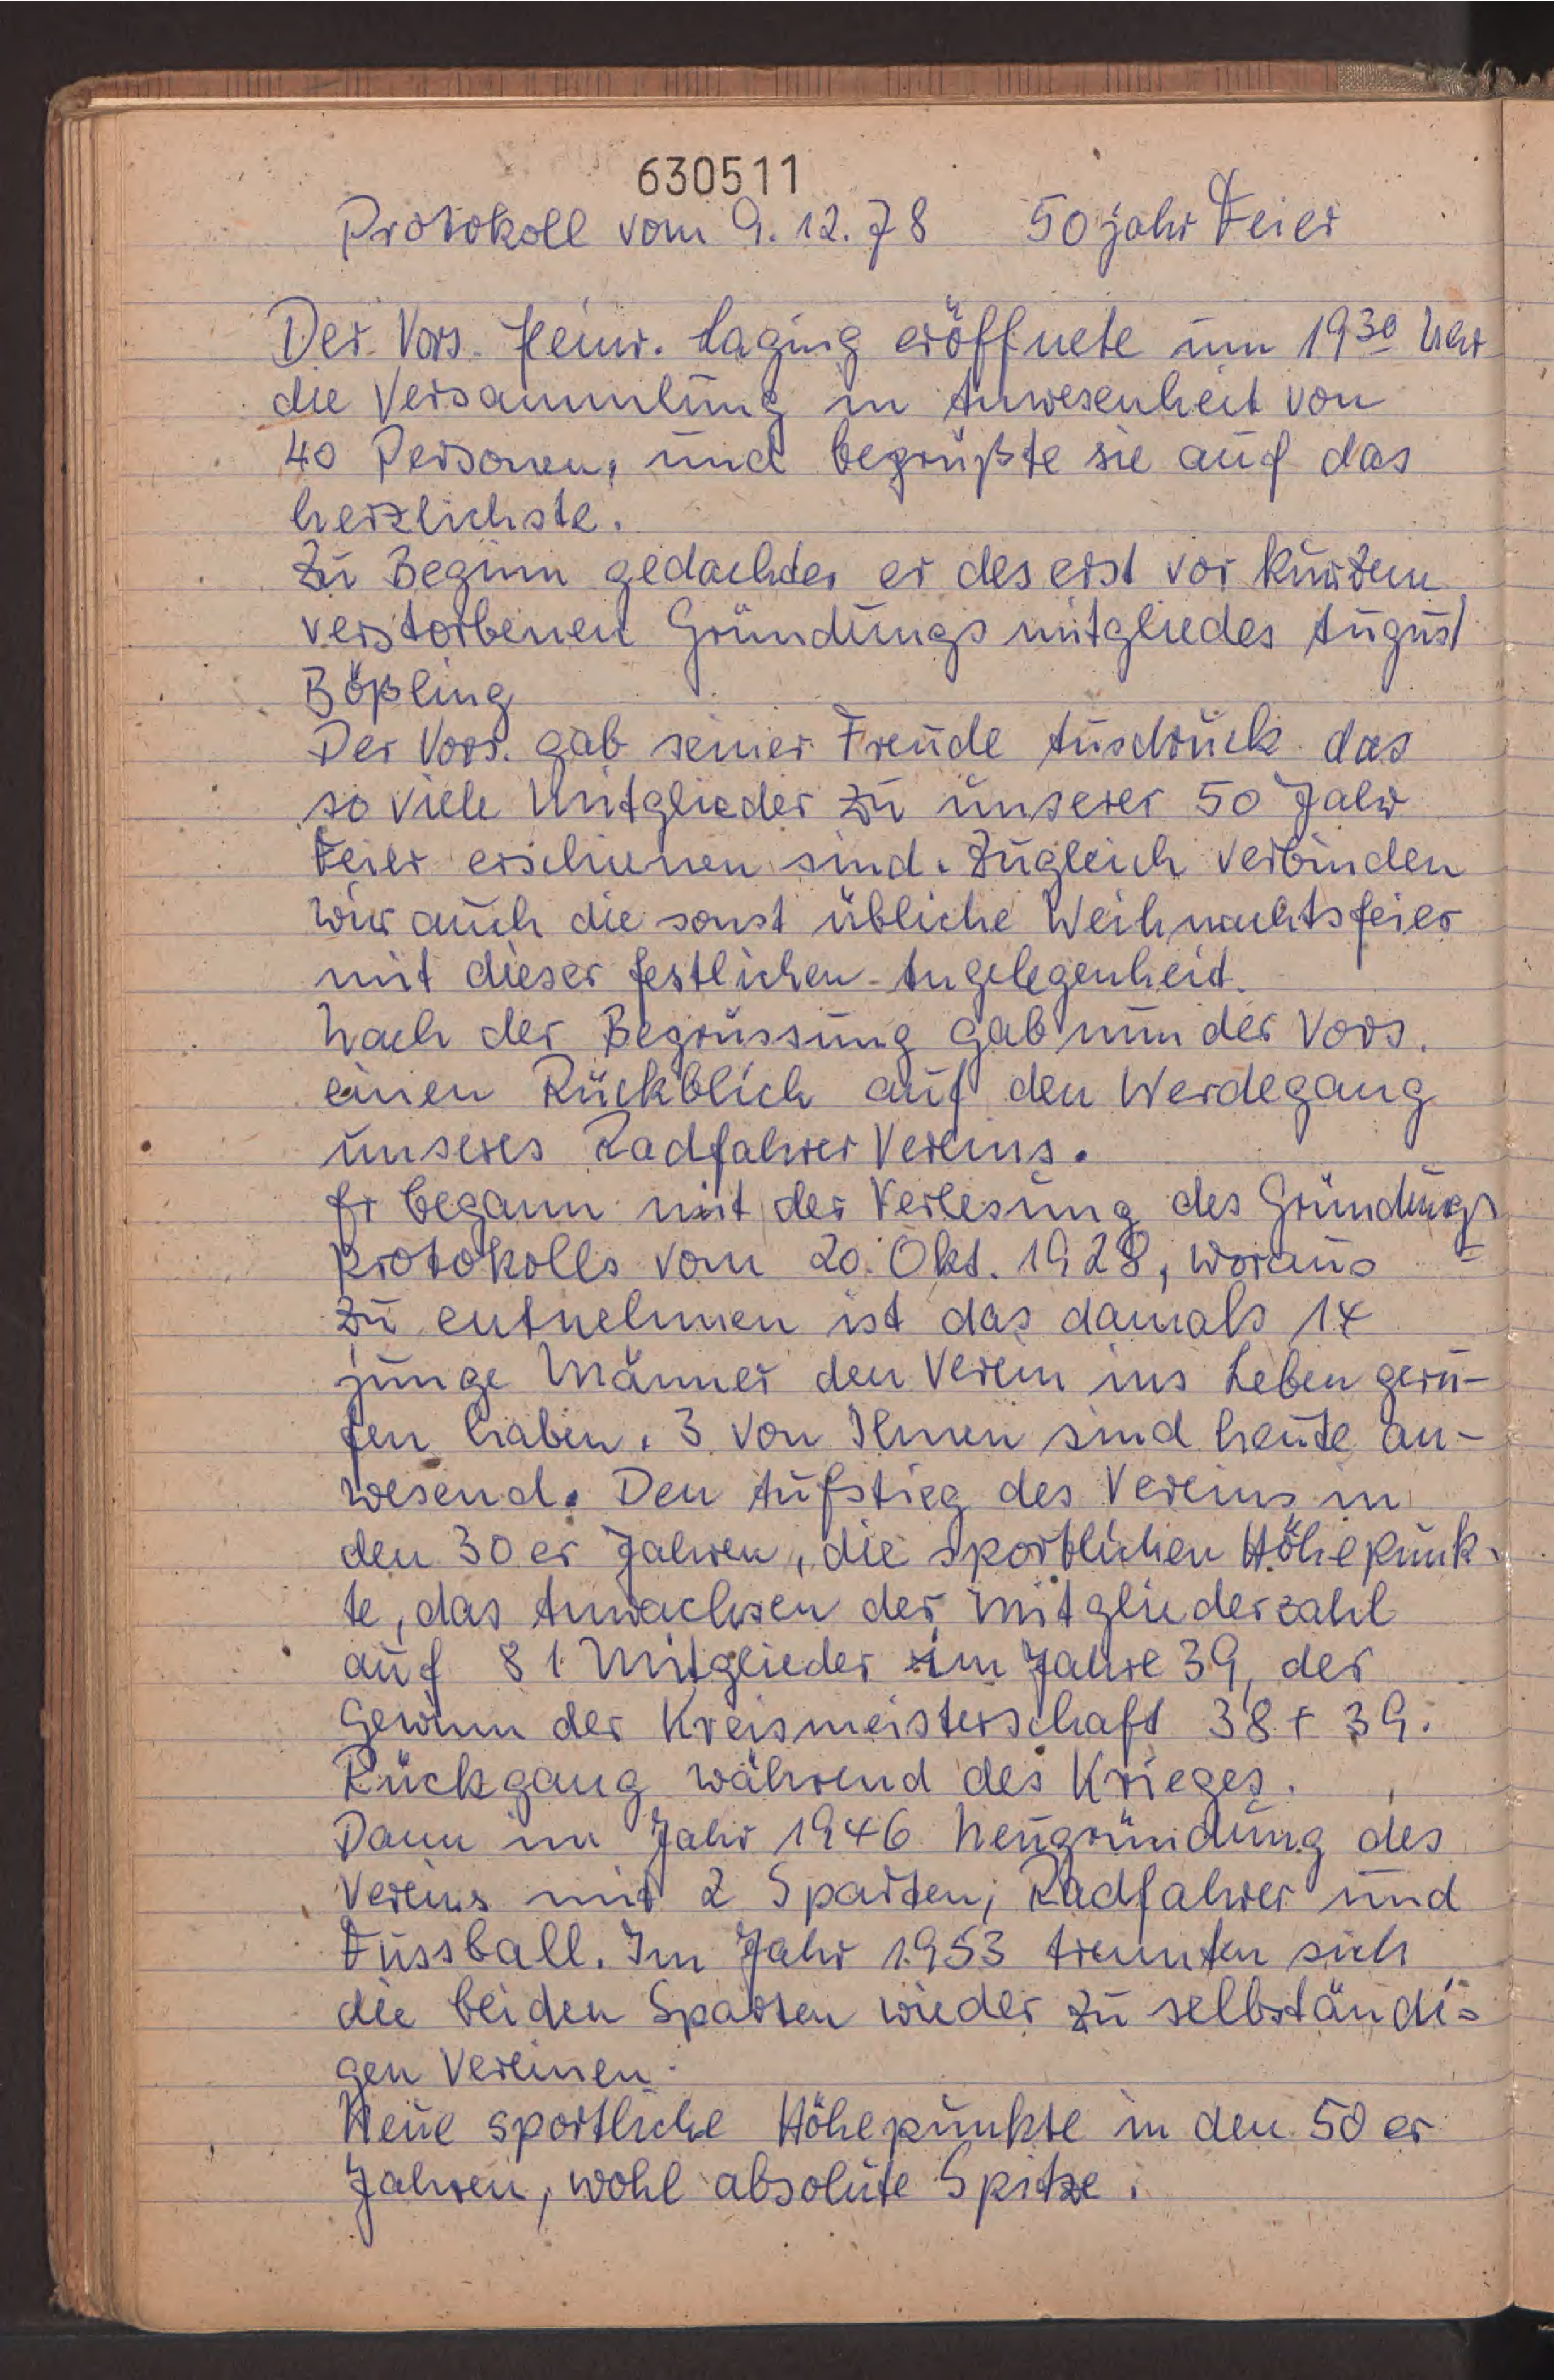 630511
Protokoll vom 9.12.78 50 jahr Feier
Der Vors. Heinr. Laging eröffnete um 19³⁰ Uhr
die Versammlung in Anwesenheit von
40 Personen, und begrüßte sie auf das
herzlichste.
Zu Beginn gedachte er des erst vor kurzem
verstorbenen Gründungsmitgliedes August
Bößling
Der Vors. gab seiner Freude Ausdruck das
so viele Mitglieder zu unserer 50 Jahr
Feier erschienen sind. Zugleich verbinden
wir auch die sonst übliche Weihnachtsfeier
mit dieser festlichen Angelegenheit.
Nach der Begrüssung gab nun der Vors.
einen Rückblich auf den Werdegang
unseres Radfahrer Vereins.
Er begann mit der Verlesung des Gründungs
protokolls vom 20. Okt. 1928, woraus
zu entnehmen ist das damals 14
junge Männer den Verein ins Leben geru-
fen haben. 3 von Ihnen sind heute an-
wesend. Den Aufstieg des Vereins in
den 30er Jahren, die sportlichen Höhepunk-
te, das Anwachsen der Mitgliederzahl
auf 81 Mitglieder im Jahre 39, der
Gewinn der Kreismeisterschaft 38 + 39.
Rückgang während des Krieges.
Dann im Jahr 1946 Neugründung des
Vereins mit 2 Sparten; Radfahrer und
Fussball. Im Jahr 1953 trennten sich
die beiden Sparten wieder zu selbständi=
gen Vereinen.
Neue sportliche Höhepunkte in den 50er
Jahren, wohl absolute Spitze.